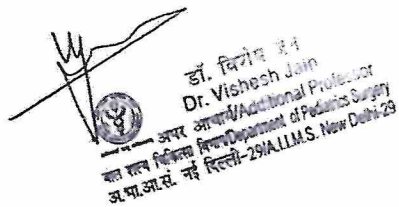 डॉ. विशेष जैन
Dr. Vishesh Jain
अपर आचार्य/Additional Professor
बाल शल्य चिकित्सा विभाग/Department of Pediatrics Surgery
अ.भा.आ.सं. नई दिल्ली-29/A.I.I.M.S. New Delhi-29